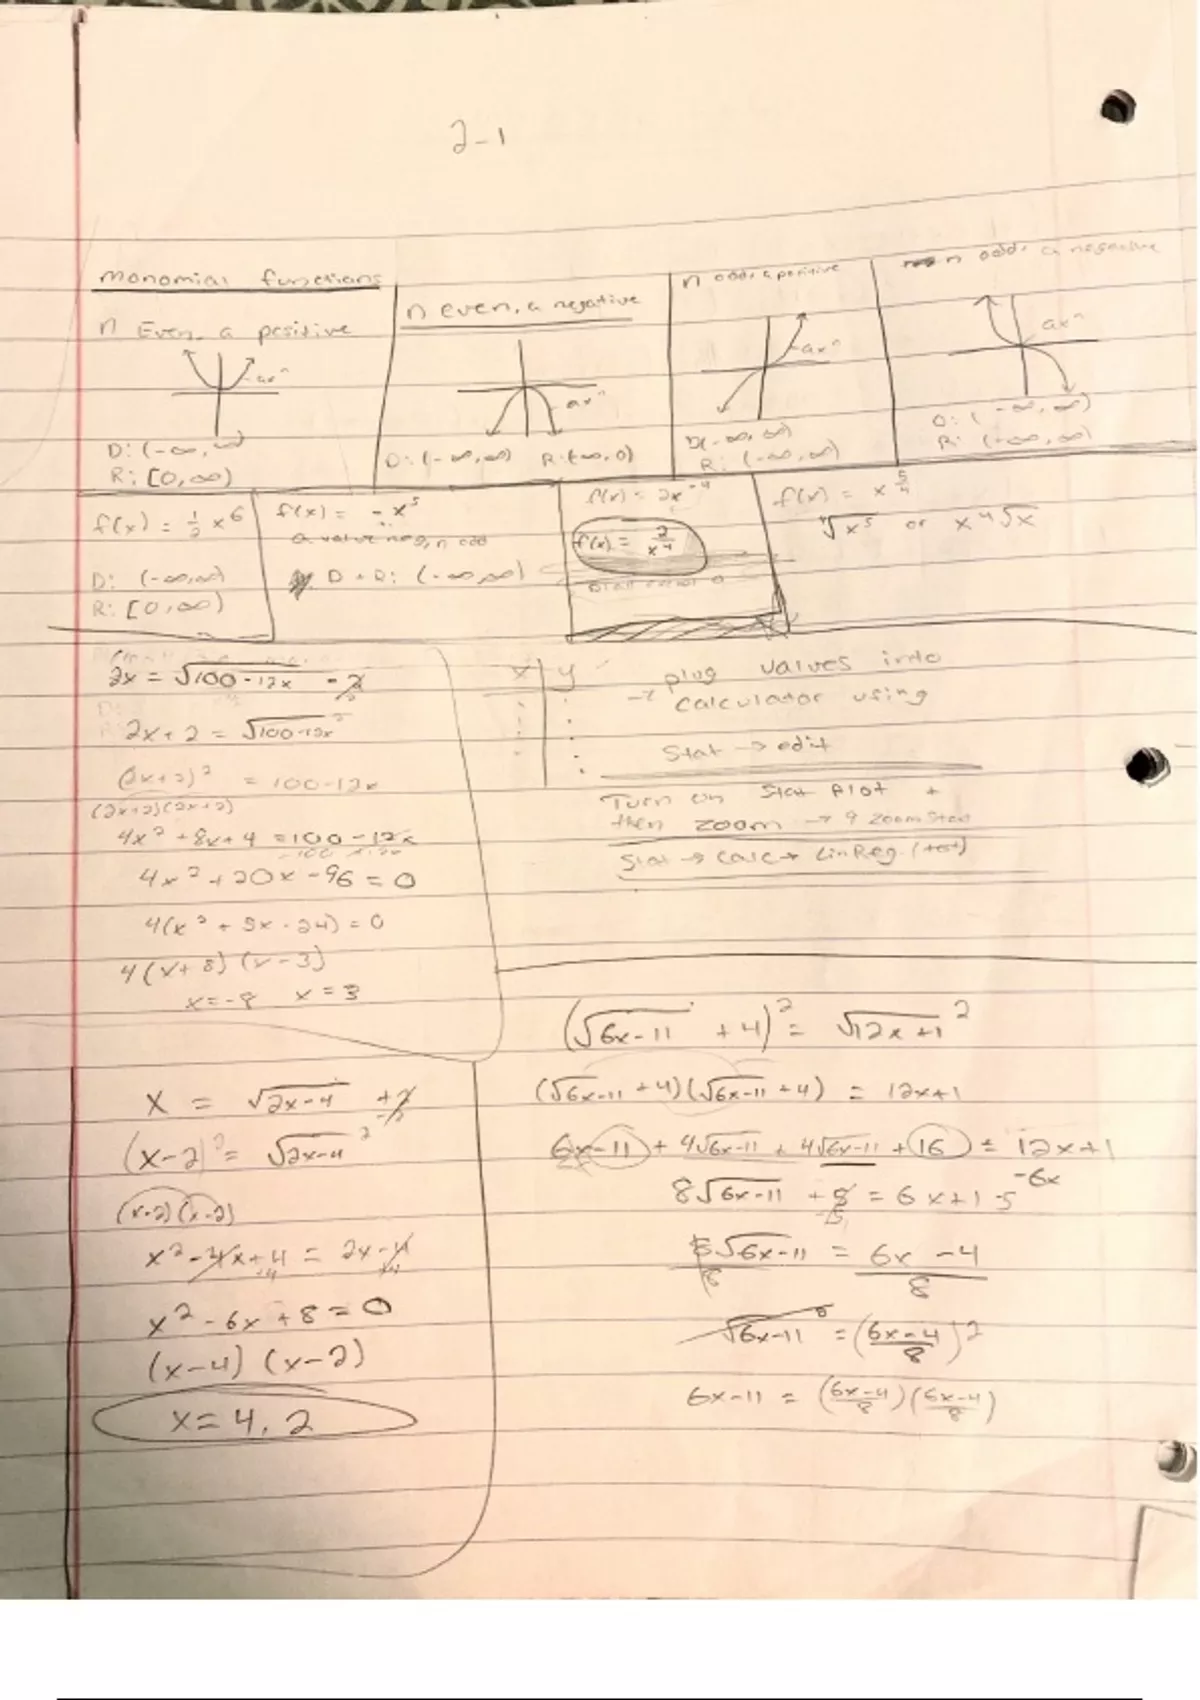 2-1
monomial functions
n Even, a positive
ax^n
D: (-∞, ∞)
R: [0, ∞)
n even, a negative
ax^n
D: (-∞, ∞) R: (-∞, 0)
n odd, a positive
ax^n
D(-∞, ∞)
R: (-∞, ∞)
n odd, a negative
ax^n
D: (-∞, ∞)
R: (-∞, ∞)
f(x) = 1/2 x^6
D: (-∞, ∞)
R: [0, ∞)
f(x) = -x^5
a value neg, n odd
D + R: (-∞, ∞)
f(x) = 2x^-4
f(x) = 2/x^4
f(x) = x^5/4
4√x^5 or x 4√x
2x = √100-12x - 2
2x + 2 = √100-12x
(2x+2)^2 = 100-12x
(2x+2)(2x+2)
4x^2 + 8x + 4 = 100 - 12x
4x^2 + 20x - 96 = 0
4(x^2 + 5x - 24) = 0
4(x + 8)(x - 3)
x = -8 x = 3
x y
→ plug values into
calculator using
Stat → edit
Turn on Stat Plot +
then zoom → 9 zoom Stat
Stat → Calc → LinReg
x = √2x-4 + 2
(x-2)^2 = √2x-4 ^2
(x-2)(x-2)
x^2 - 4x + 4 = 2x - 4
x^2 - 6x + 8 = 0
(x-4)(x-2)
x = 4, 2
(√6x-11 + 4)^2 = √12x+1 ^2
(√6x-11 + 4)(√6x-11 + 4) = 12x+1
6x-11 + 4√6x-11 + 4√6x-11 + 16 = 12x+1
-6x
8√6x-11 + 5 = 6x+1 -5
-5
8√6x-11 = 6x - 4
8 8
√6x-11 = (6x-4/8)^2
6x-11 = (6x-4/8)(6x-4/8)